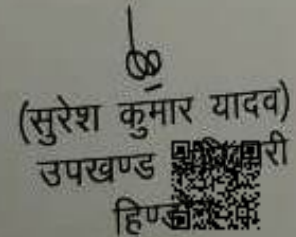 (सुरेश कुमार यादव)
उपखण्ड